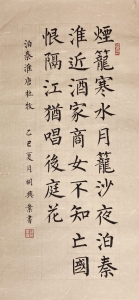 煙籠寒水月籠沙夜泊秦
淮近酒家商女不知亡國
恨隔江猶唱後庭花
泊秦淮唐杜牧 夏月 興業書